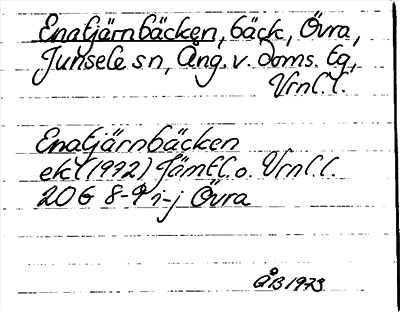 Enatjärnbäcken, bäck, Övra,
Junsele sn, Ång. v. doms. tg,
Vrnl. l.
Enatjärnbäcken
ekt (1992) Jämtl. o. Vrnl. l.
20G 8-9 i-j Övra
ÅB 1973